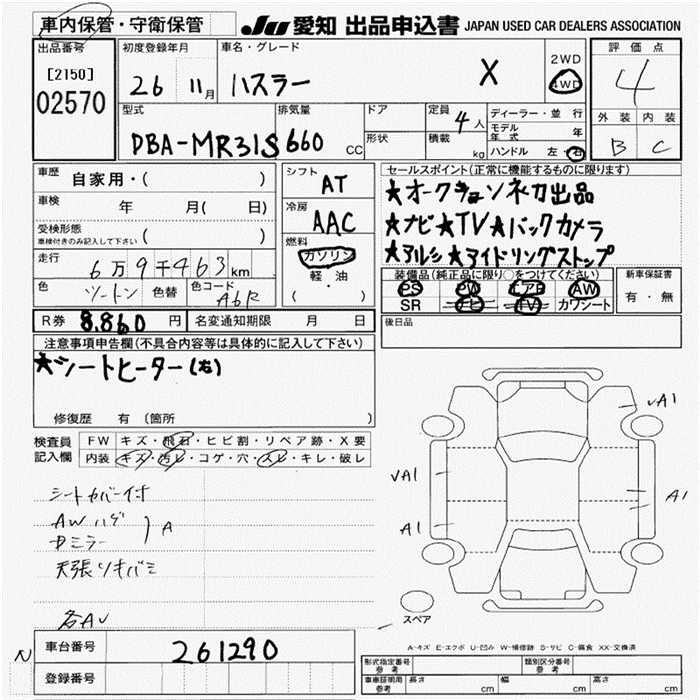 車内保管・守衛保管
JU 愛知 出品申込書 JAPAN USED CAR DEALERS ASSOCIATION
出品番号
[2150]
02570
初度登録年月
26 11月
車名・グレード
ハスラー X
2WD
4WD
評価点
4
外装 内装
B C
型式
DBA-MR31S
排気量
660 CC
ドア
形状
定員
4人
積載
kg
ディーラー・並行
モデル年式 年
ハンドル 左・右
車歴
自家用・( )
車検
年 月( 日)
受検形態
車検付きのみ記入して下さい ( )
走行
6万9千463km
色
ツートン 色替
色コード
A6R
シフト
AT
冷房
AAC
燃料
ガソリン
軽・油
( )
セールスポイント(正常に機能するものに限ります)
★オークション初出品
★ナビ★TV★バックカメラ
★アルミ★アイドリングストップ
装備品(純正品に限り○をつけてください)
PS PW エアB AW
SR ナビ TV カワシート
新車保証書
有・無
R券 8.860円
名変通知期限 月 日
後日品
注意事項申告欄(不具合内容等は具体的に記入して下さい)
★シートヒーター(右)
修復歴 有 (箇所 )
検査員記入欄
FW キズ・飛石・ヒビ割・リペア跡・X要
内装 キズ・汚レ・コゲ・穴・スレ・キレ・破レ
シートカバー付
AWハゲ
ドミラー
A
天張リキバミ
各AU
VA1
VA1
A1
A1
スペア
A-キズ E-エクボ U-凹み W-補修跡 S-サビ C-腐食 XX-交換済
N
車台番号
261290
登録番号
形式指定番号
参考
類別区分番号
参考
車車証明用
参考
長さ cm
幅 cm
高さ cm